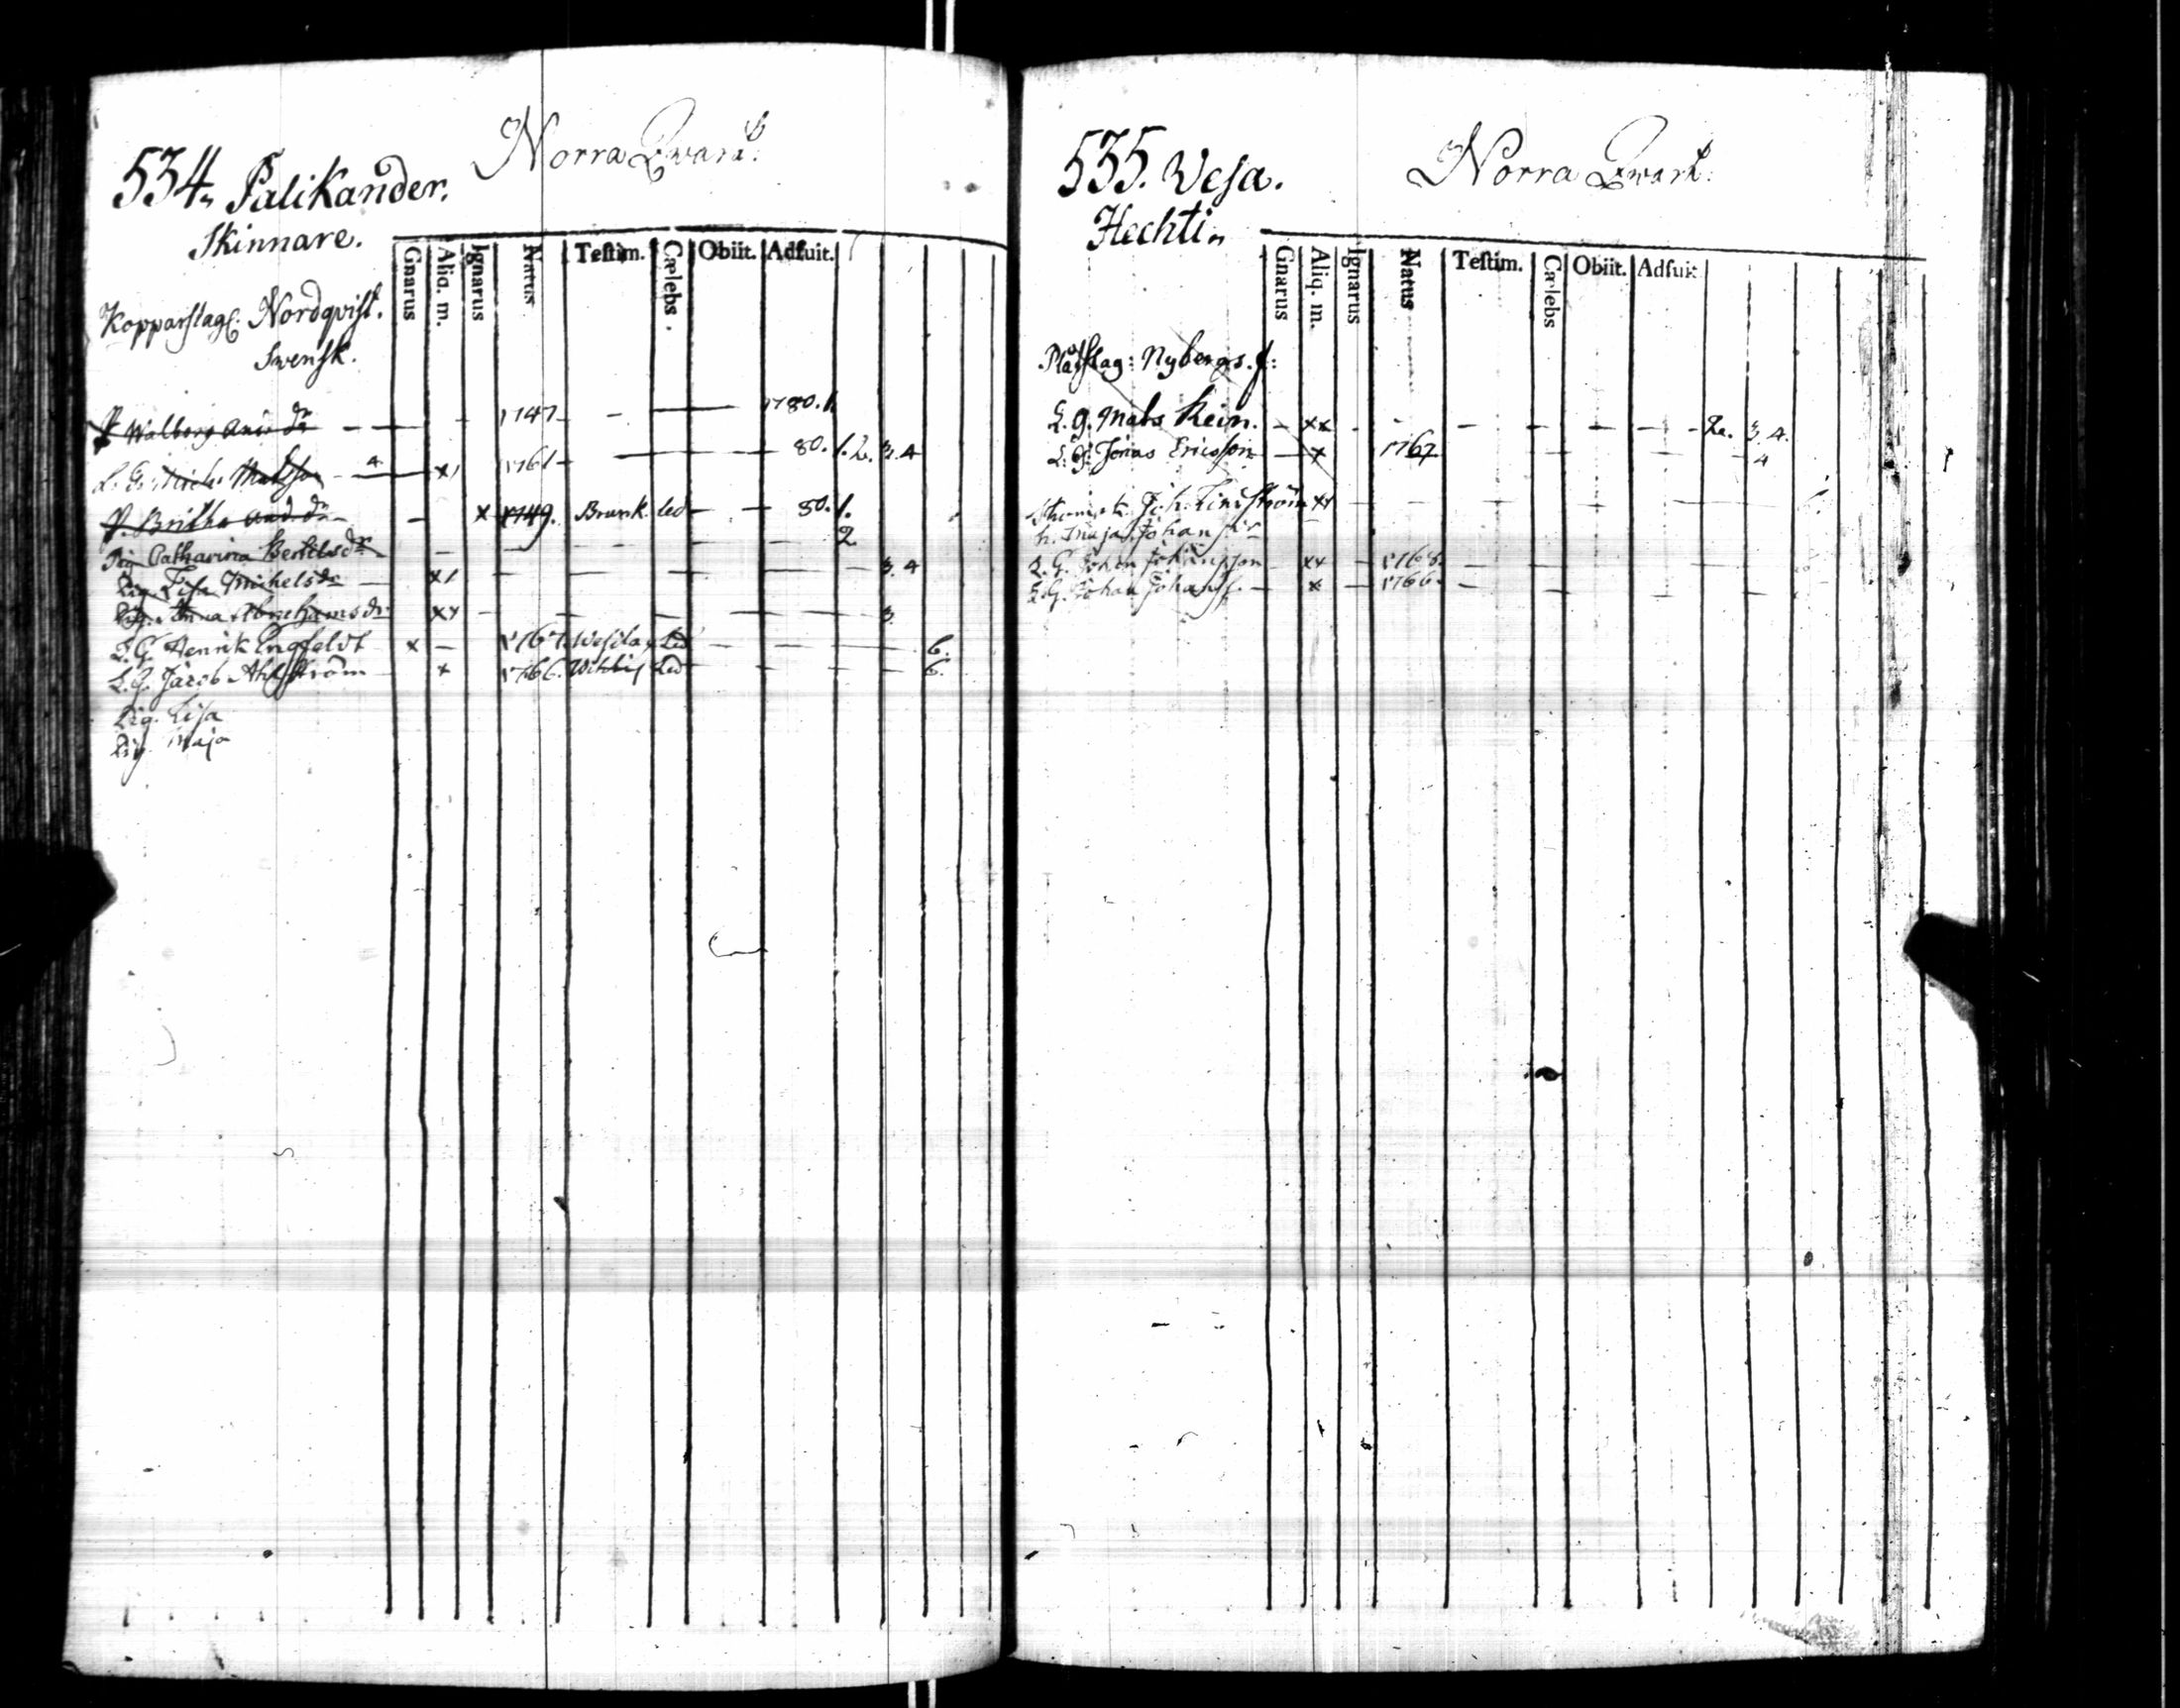 534. Palikander. Norra Qwart:
Skinnare.
Gnarus Aliq. m. Ignarus Natus Testim. Cælebs. Obiit. Adfuit.
Kopparslag: Nordqvist.
Swensk.
P. Walborg And: dr — 1747 — — 1780. 1.
L. G. Mich: Matsson 4 — x1 1761 — — 80. 1. 2. 3. 4
P. Britha And. dr — x 1749. Brunk. led — — 80. 1.
Pig Catharina Bertilsdr — — — — 2
Pig. Lisa Michelsdr — x1 — — — — — 3. 4
Pig. Anna Abrahamsdr xx — — — — — 3.
L. G. Henrik Engfeldt x — 1767. Led — — — 6.
L. G. Jacob Ahlström x 1766. Led — — — 6.
Pig. Lisa
Pig. Maja
535. Vesa. Norra Qwart:
Hechti.
Gnarus Aliq. m. Ignarus Natus Testim. Cælebs Obiit. Adfuit
Plåtslag: Nybergs.
L. G. Mats Rein. — xx - - — — — — 2. 3. 4.
L. G. Jonas Ericsson — x 1767 — 4
Joh. Lindström xx — — — — —
h. Maja Johansdr
L. G. Johan Johansson xx — 1768. — — — —
L. G. Johan Johanss. — x — 1766. — — — —